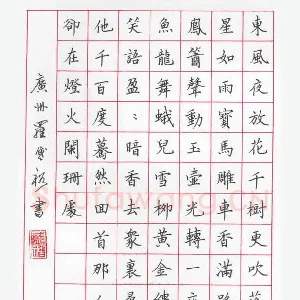 東風夜放花千樹更吹落
星如雨寶馬雕車香滿路
鳳簫聲動玉壺光轉一夜
魚龍舞蛾兒雪柳黃金縷
笑語盈〻暗香去衆裏
他千百度驀然回首那人
卻在燈火闌珊處
廣州羅書